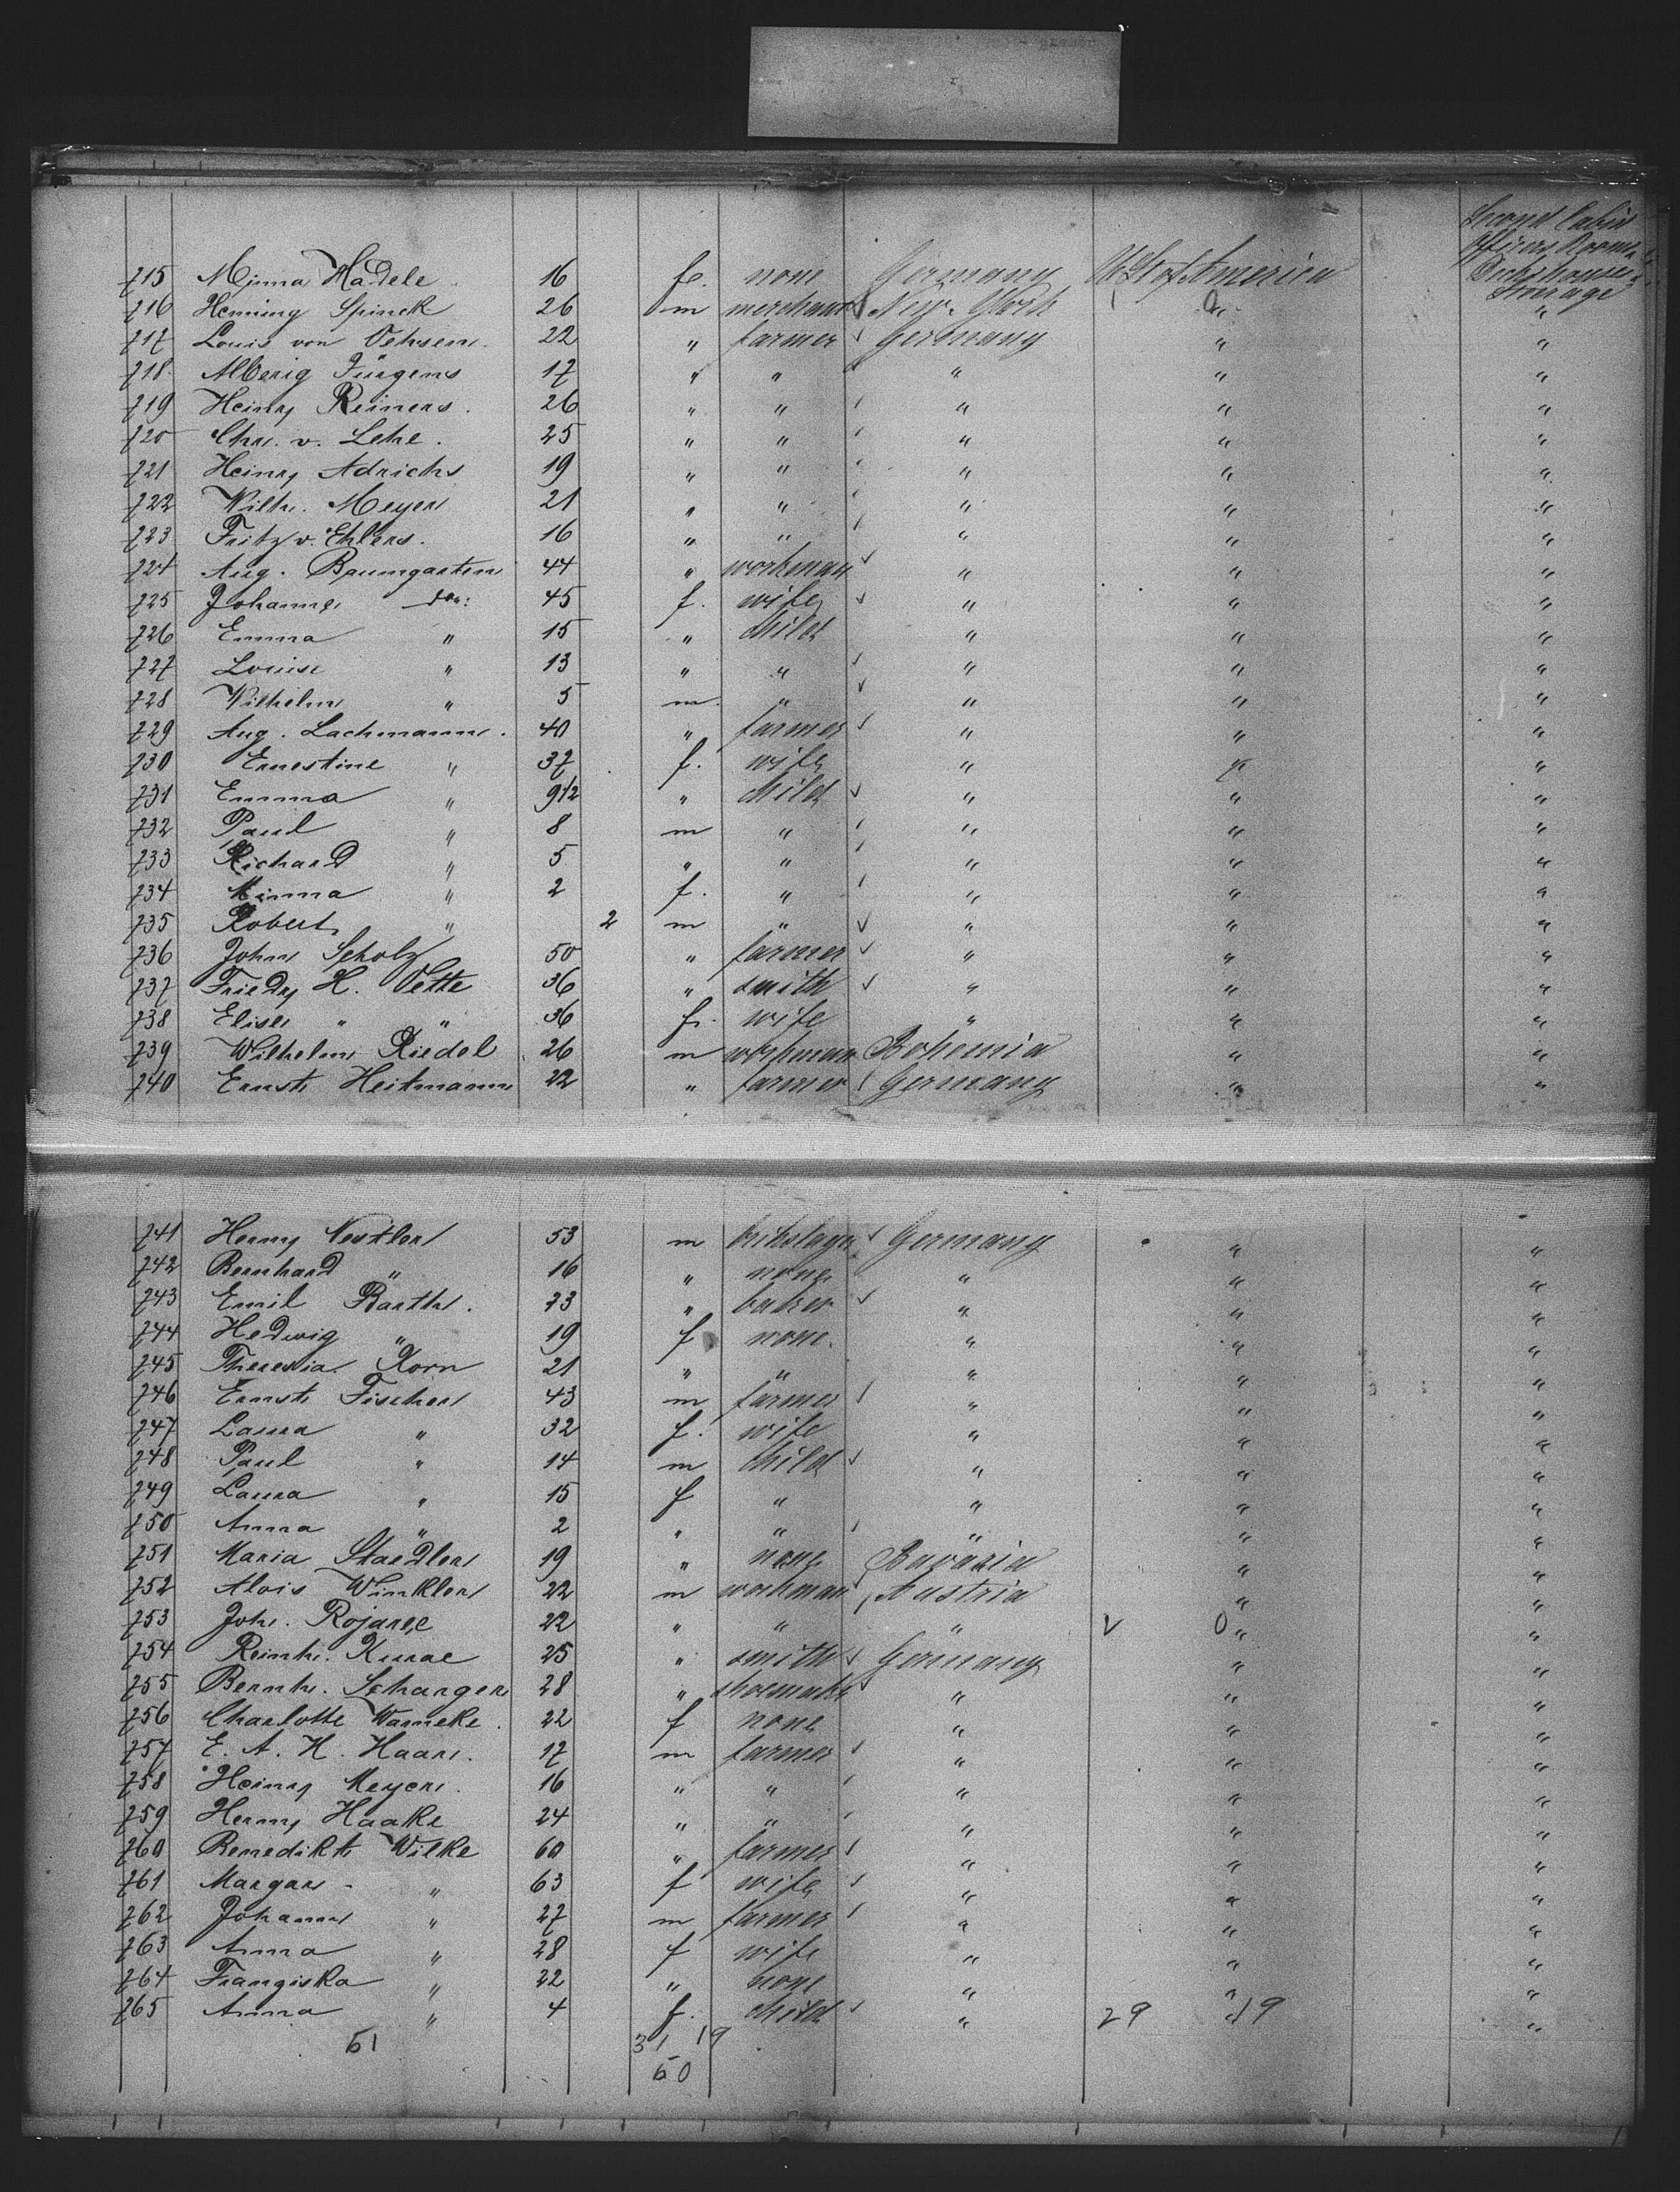 Second Cabin
Officers Rooms
Deckhouse &
Steerage
715 Minna Hädele 16 fe. none Germany U St of America
716 Henning Spinck 26 m merchant New York "
717 Louis von Oehsen 22 " farmer Germany " "
718 Alberig Jürgens 17 " " " " "
719 Heinry Reiners. 26 " " " " "
720 Chr. v. Lehe. 25 " " " " "
721 Heinry Adricks 19 " " " " "
722 Wilh. Meyer 21 " " " " "
723 Fritz v. Ehlers. 16 " " " " "
724 Aug. Baumgarten 44 " workman " " "
725 Johanne do: 45 f. wife " " "
726 Emma " 15 " child " " "
727 Louise " 13 " " " " "
728 Wilhelm " 5 m. " " " "
729 Aug. Lachmann. 40 " farmer " " "
730 Ernestine " 37 f. wife " " "
731 Emma " 9 1/2 " child " " "
732 Paul " 8 m " " " "
733 Richard " 5 " " " " "
734 Minna " 2 f. " " " "
735 Robert " 2 m " " " "
736 John Scholz 50 " farmer " " "
737 Friedr H. Vette 36 " smith " " "
738 Elise " " 36 f. wife " " "
739 Wilhelm Riedel 26 m workman Bohemia " "
740 Ernst Heitmann 22 " farmer Germany " "
741 Hermy Nestler 53 m Germany " "
742 Bernhard " 16 " none " " "
743 Emil Barth. 23 " baker " " "
744 Hedwig " 19 f none. " " "
745 Theresia Korn 21 " " " " "
746 Ernst Fischer 43 m farmer " " "
747 Laura " 32 f. wife " " "
748 Paul " 14 m child " " "
749 Laura " 15 f " " " "
750 Anna " 2 " " " " "
751 Maria Staedler 19 " none Bavaria " "
752 Alois Winkler 22 m workman Austria " "
753 Joh. Rojarec 22 " " " " "
754 Reinh. 25 " smith Germany " "
755 Bernh. Scharger 28 " shoemaker " " "
756 Charlotte Warneke. 22 f none " " "
757 E. A. H. Haar. 17 m farmer " " "
758 Heinry Meyer. 16 " " " " "
759 Hermy Haake 24 " " " " "
760 Benedikt Wilke 60 " farmer " " "
761 Margar - " 63 f wife " " "
762 Johann " 27 m farmer " " "
763 Anna " 28 f wife " " "
764 Franziska " 22 " none " " "
765 Anna " 4 f. child " 29 " 19 "
51 31 19
50